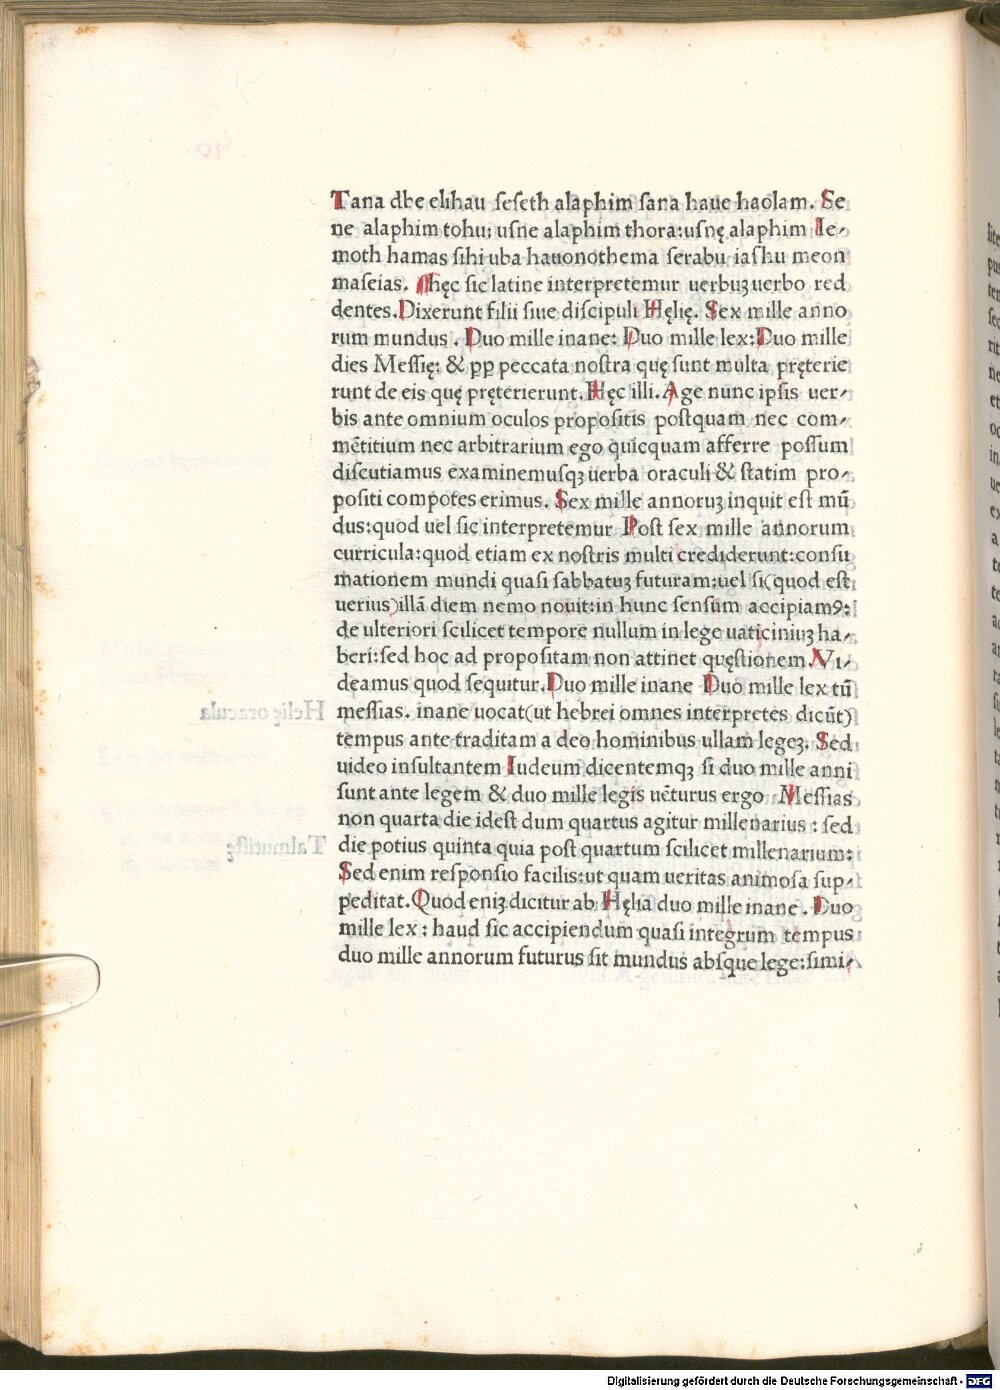 Tana dbe elihau ſeſeth alaphim ſana haue haolam. Se
ne alaphim tohu: uſne alaphim thora:uſnę alaphim Ie-
moth hamas ſihi uba hauonothema ſerabu iaſhu meon
maſeias. Hęc ſic latine interpretemur uerbuꝫ uerbo red
dentes.Dixerunt filii ſiue diſcipuli Hęlię. Sex mille anno
rum mundus . Duo mille inane: Duo mille lex:Duo mille
dies Meſſię: & ꝓꝑ peccata noſtra quę ſunt multa pręterie
runt de eis quę pręterierunt.Hęc illi.Age nunc ipſis uer-
bis ante omnium oculos propoſitis poſtquam nec com-
mētitium nec arbitrarium ego quicquam afferre poſſum
diſcutiamus examinemuſqꝫ uerba oraculi & ſtatim pro-
poſiti compotes erimus. Sex mille annoruꝫ inquit eſt mū
dus:quod uel ſic interpretemur Poſt ſex mille annorum
curricula:quod etiam ex noſtris multi crediderunt:conſu
mationem mundi quaſi ſabbatuꝫ futuram:uel ſi(quod eſt
uerius)illā diem nemo nouit:in hunc ſenſum accipiamꝰ:
de ulteriori ſcilicet tempore nullum in lege uaticiniuꝫ ha-
beri:ſed hoc ad propoſitam non attinet quęſtionem.Vi-
deamus quod ſequitur.Duo mille inane Duo mille lex tū
meſſias. inane uocat(ut hebrei omnes interpretes dicūt)
tempus ante traditam a deo hominibus ullam legeꝫ. Sed
uideo inſultantem Iudeum dicentemqꝫ ſi duo mille anni
ſunt ante legem & duo mille legis uēturus ergo Meſſias
non quarta die ideſt dum quartus agitur millenarius : ſed
die potius quinta quia poſt quartum ſcilicet millenarium:
Sed enim reſponſio facilis:ut quam ueritas animoſa ſup-
peditat.Quod eniꝫ dicitur ab Hęlia duo mille inane . Duo
mille lex : haud ſic accipiendum quaſi integrum tempus
duo mille annorum futurus ſit mundus abſque lege:ſimi-
Digitalisierung gefördert durch die Deutsche Forschungsgemeinschaft - DFG